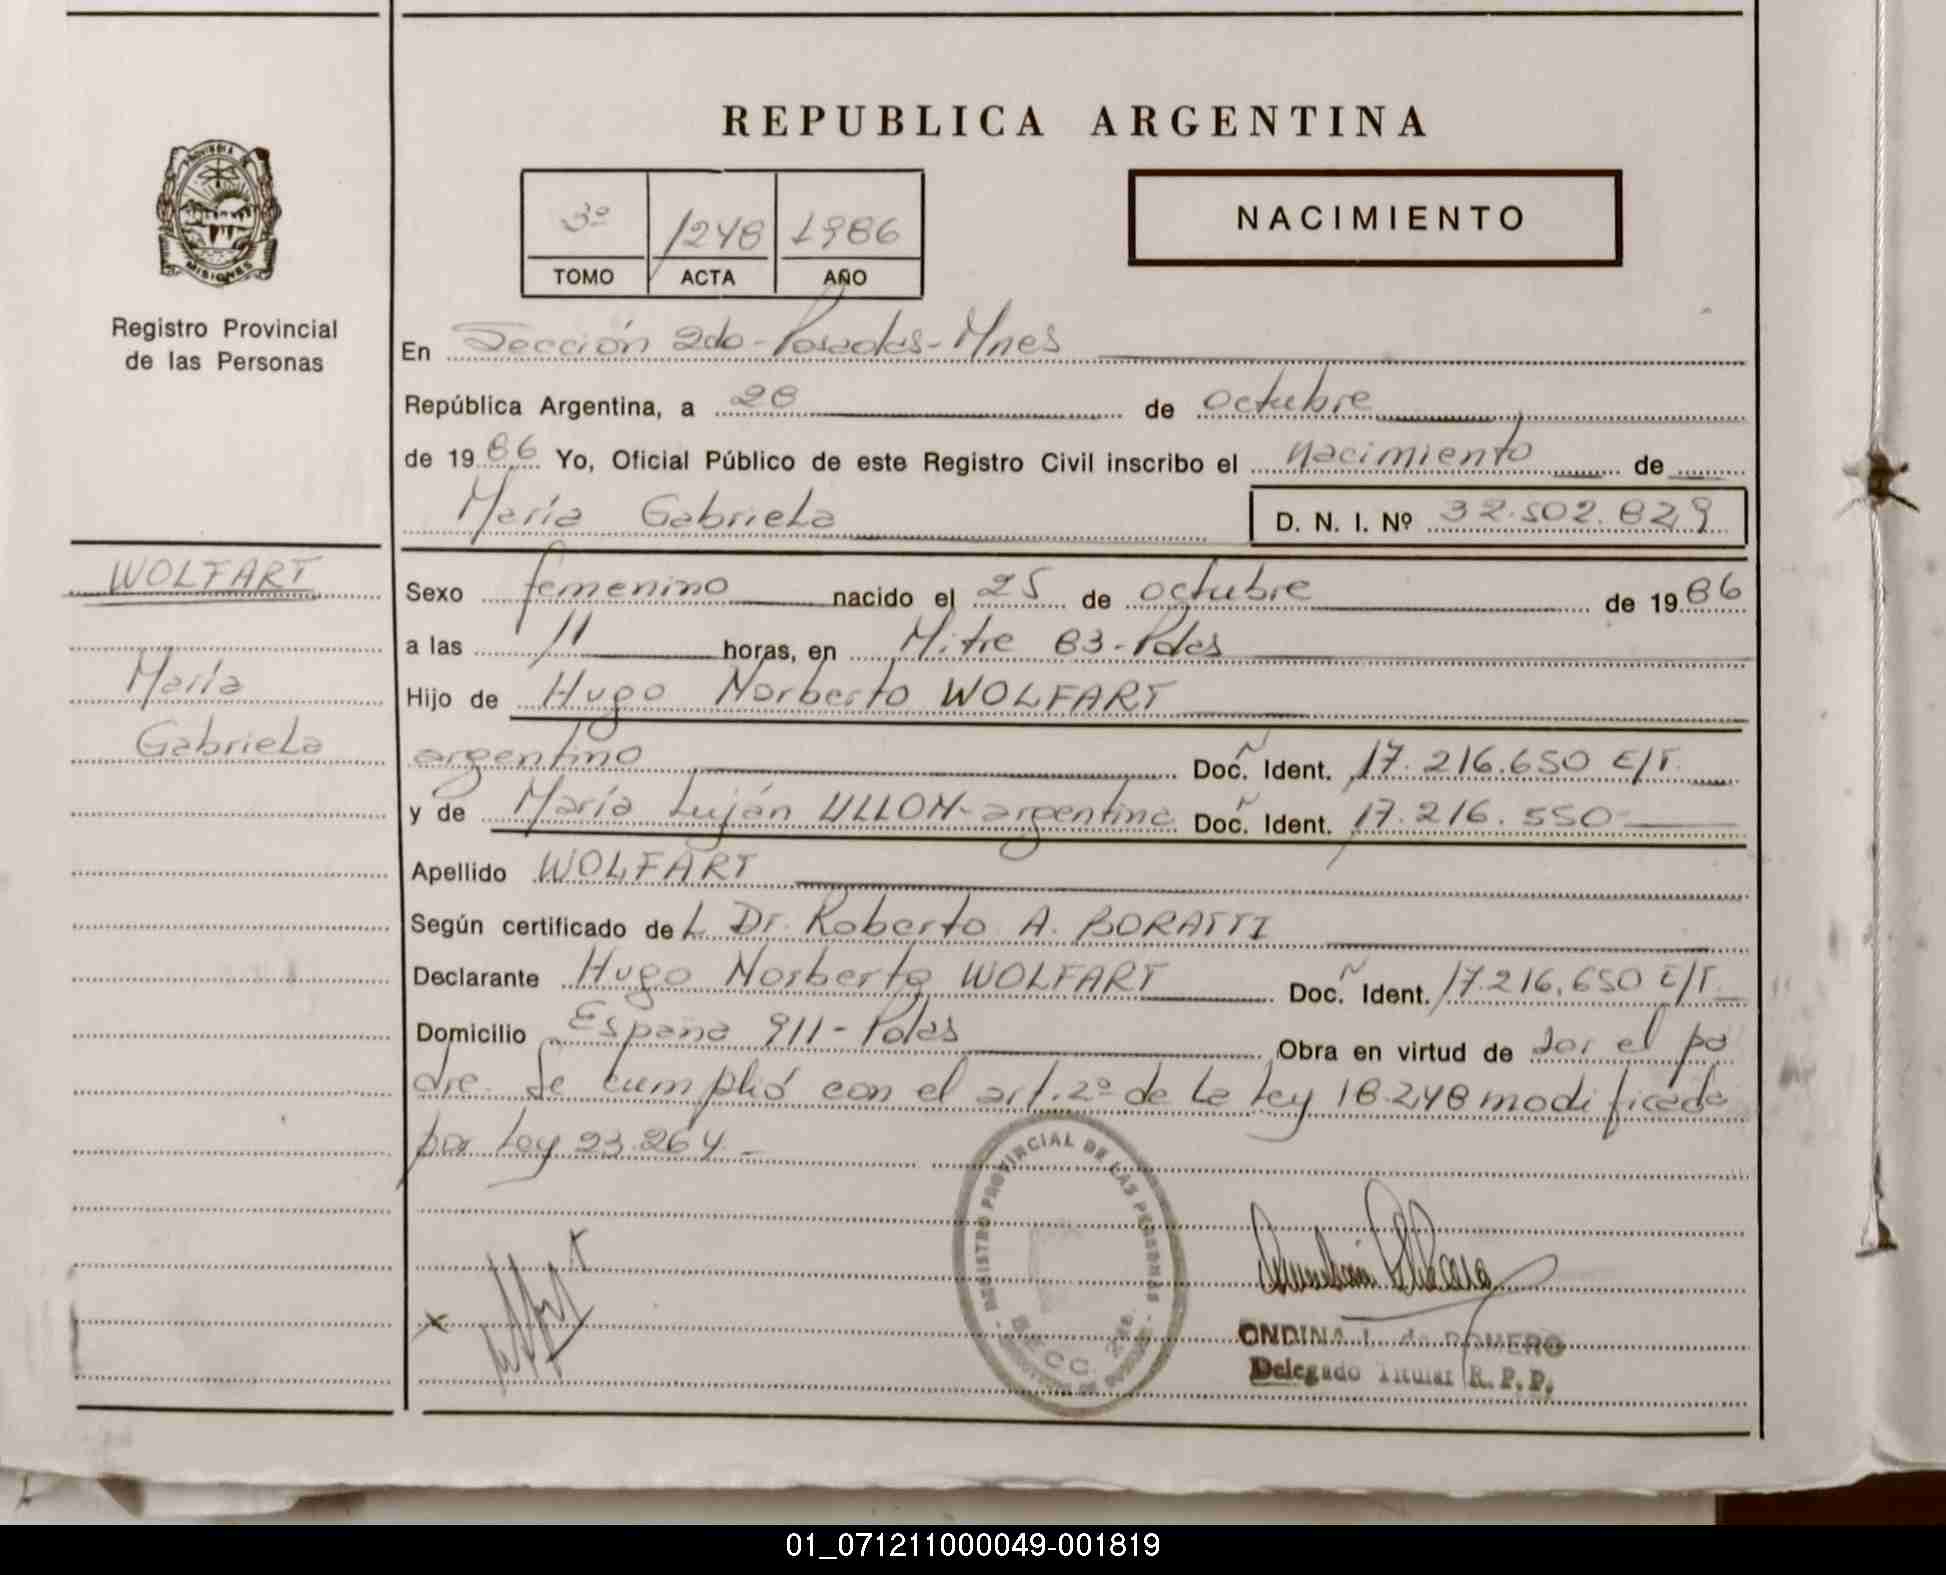 REPUBLICA ARGENTINA
PROVINCIA DE
MISIONES
Registro Provincial
de las Personas
3º 1248 1986
TOMO ACTA AÑO
NACIMIENTO
En Sección 2da-Posadas-Mnes
República Argentina, a 28 de octubre
de 1986 Yo, Oficial Público de este Registro Civil inscribo el nacimiento de
María Gabriela D. N. I. Nº 32.502.829
WOLFART
María
Gabriela
Sexo femenino nacido el 25 de octubre de 1986
a las 11 horas, en Mitre 83-Pdas
Hijo de Hugo Norberto WOLFART
argentino Doc. Ident. 17.216.650 E/T.
y de María Luján ULLON-argentina Doc. Ident. 17.216.550
Apellido WOLFART
Según certificado del Dr. Roberto A. BORATTI
Declarante Hugo Norberto WOLFART Doc. Ident. 17.216.650 E/T.
Domicilio España 911-Pdas Obra en virtud de ser el pa
dre. Se cumplió con el art. 2º de la Ley 18.248 modificada
por Ley 23.264.-
REGISTRO PROVINCIAL DE LAS PERSONAS
SECC. 2da.
ONDINA L. de ROMERO
Delegado Titular R.P.P.
01_071211000049-001819